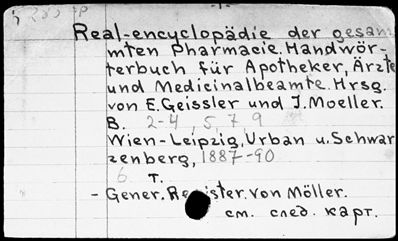 Real-encyclopädie der gesam
mten Pharmacie. Handwör-
terbuch für Apotheker, Ärzte
und Medicinalbeamte. Hrsg.
von E. Geissler und J. Moeller.
B. 2-4, 5, 7 9
Wien-Leipzig, Urban u. Schwar
zenberg, 1887-90
6 т.
- Gener. Register. von Möller.
см. след. карт.